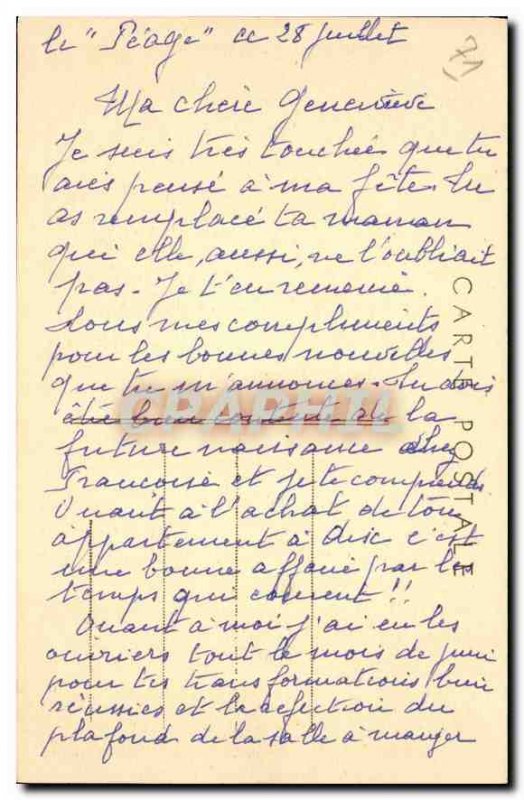 le "Péage" ce 28 juillet
71
Ma chère Geneviève
Je suis très touchée que tu
aies pensé à ma fête. Tu
as remplacé ta maman
qui elle, aussi, ne l'oubliait
pas. Je t'en remercie.
Tous mes compliments
pour les bonnes nouvelles
que tu m'annonces. Tu dois
être bien contente de la
future naissance chez
Françoise et je te comprends
Quant à l'achat de ton
appartement à c'est
une bonne affaire par les
temps qui courent !!
Quant à moi j'ai eu les
ouvriers tout le mois de juin
pour tes transformations bien
réussies et la réfection du
plafond de la salle à manger
CARTE POSTALE